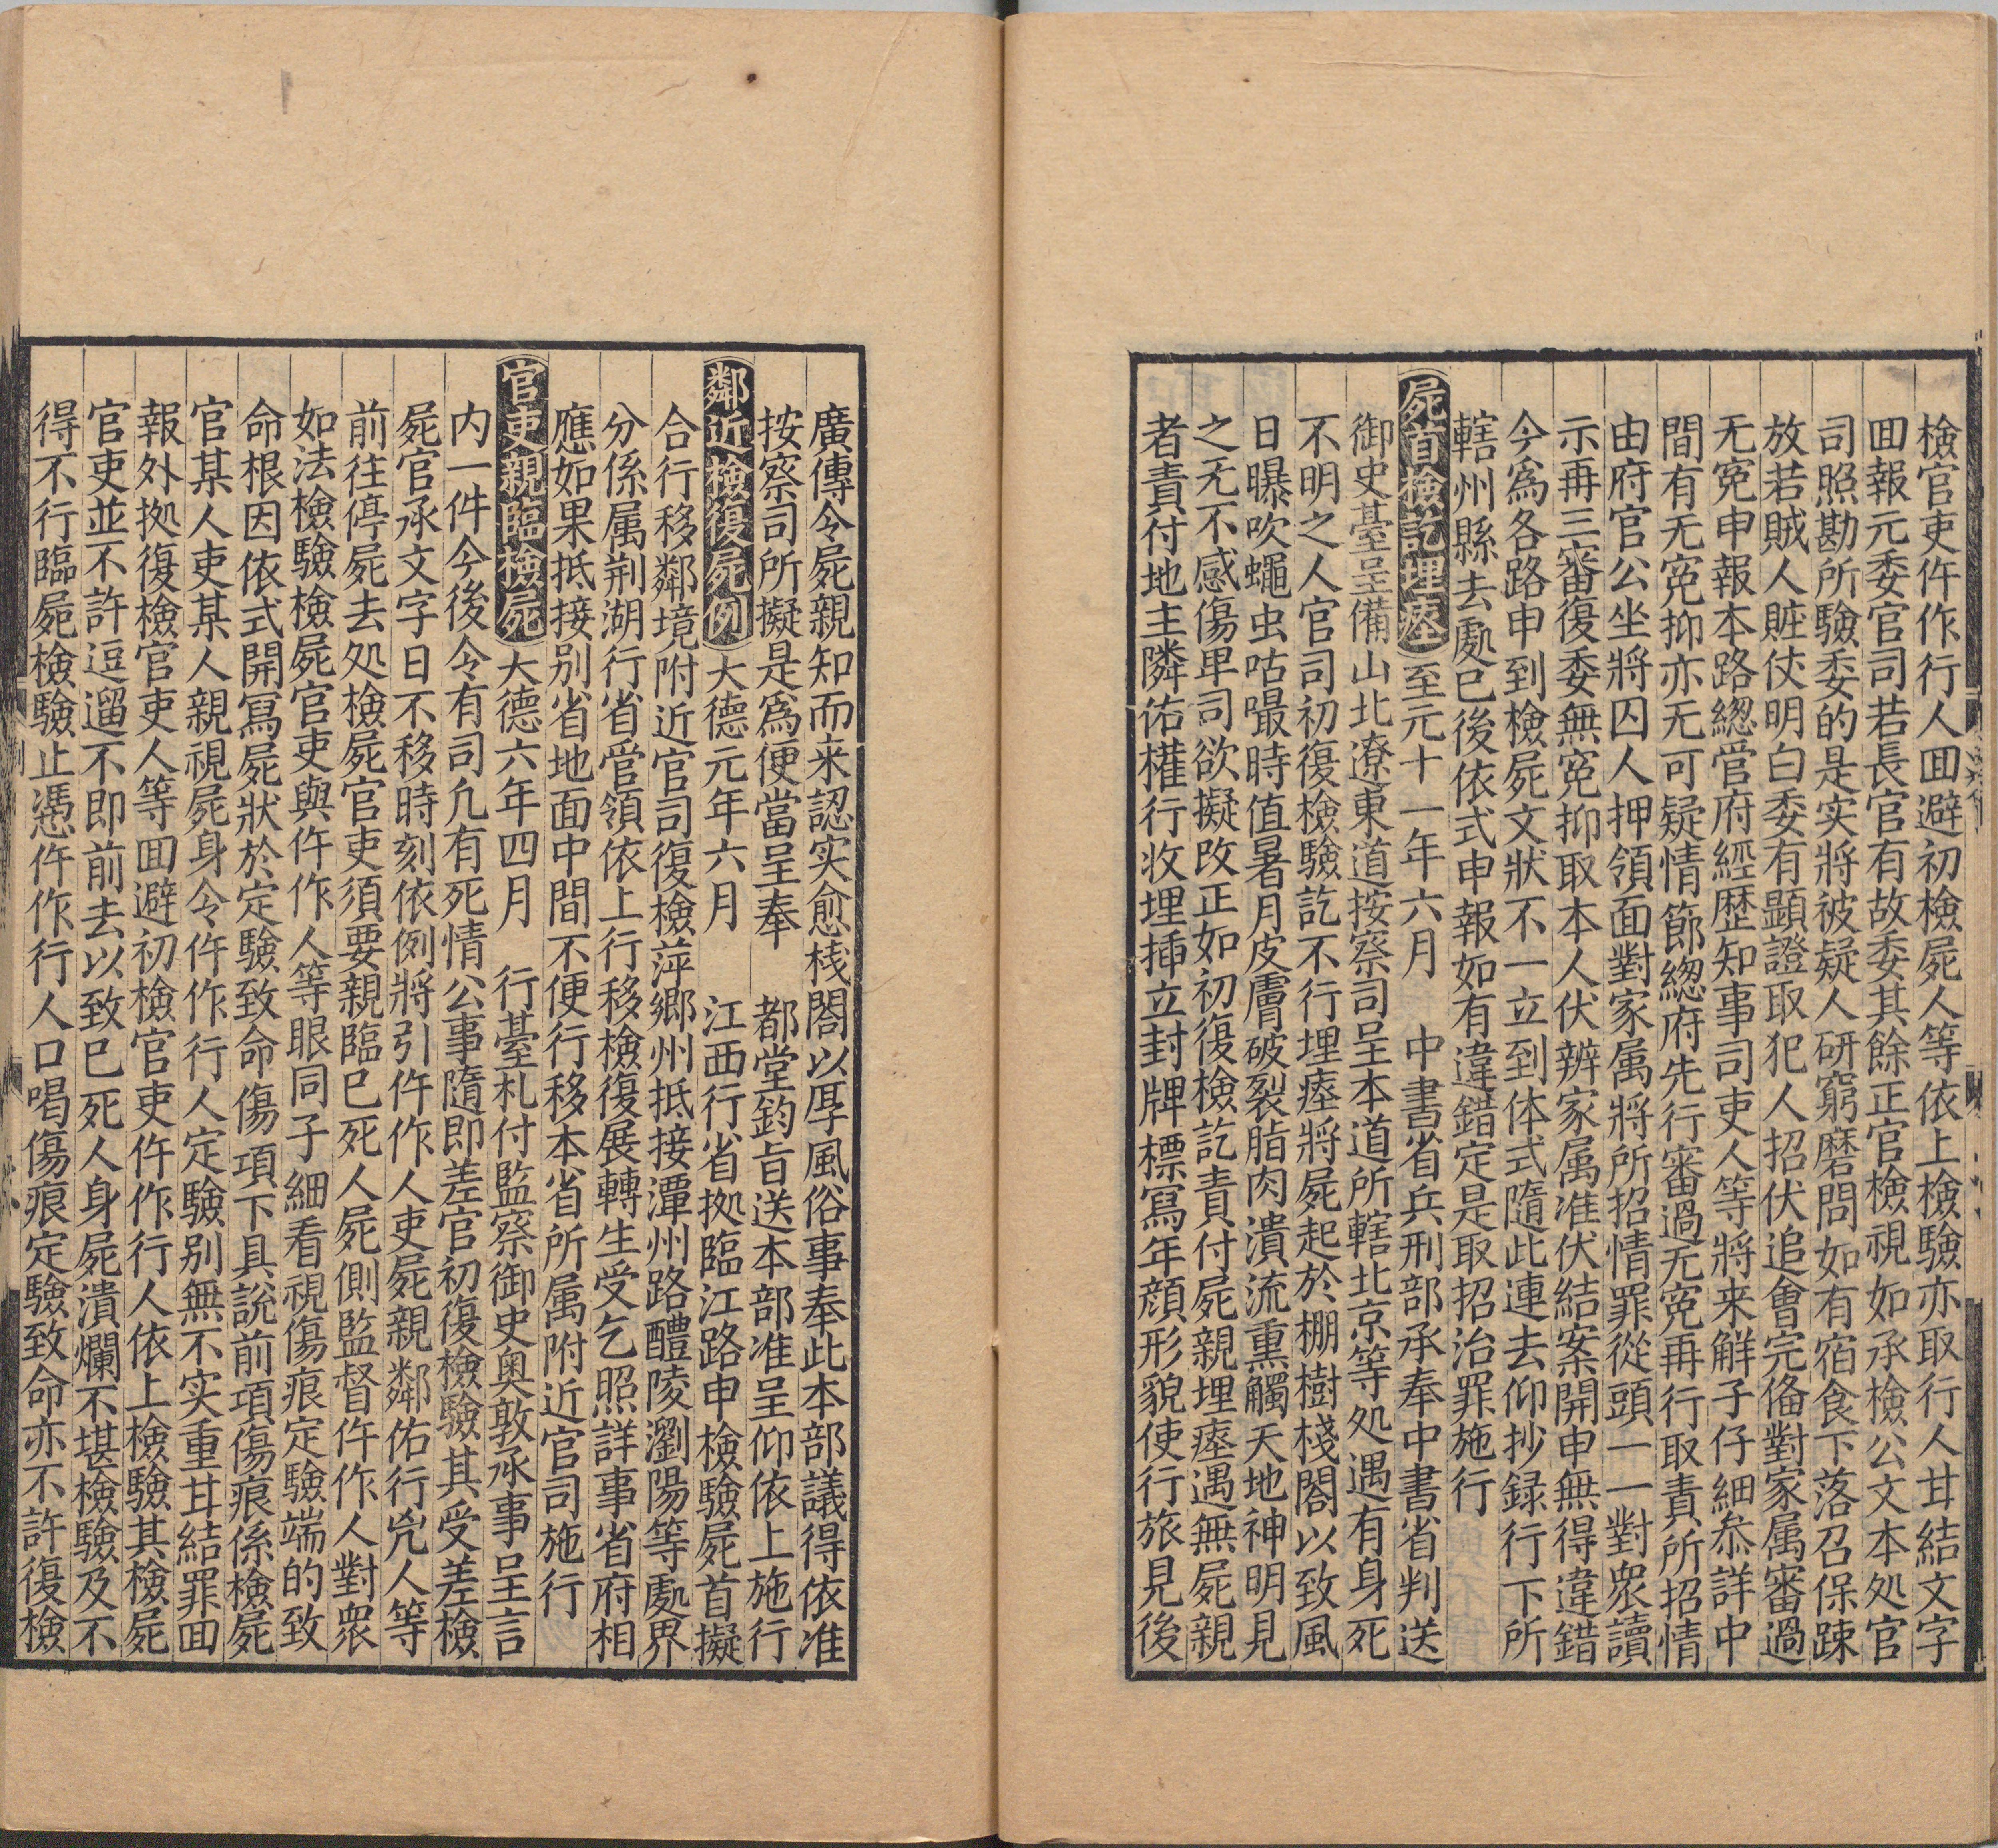 檢官吏仵作行人回避初檢屍人等依上檢驗亦取行人甘結文字
回報元委官司若長官有故委其餘正官檢視如承檢公文本処官
司照勘所驗委的是实將被疑人研窮磨問如有宿食下落召保踈
放若賊人賍仗明白委有顕證取犯人招伏追會完俻對家属審過
无寃申報本路緫管府經歴知事司吏人等將来觧子仔細叅詳中
間有无寃抑亦无可疑情節緫府先行審過无寃再行取責所招情
由府官公坐將囚人押領面對家属將所招情罪從頭一一對衆讀
示再三審復委無寃抑取本人伏辨家属准伏結案開申無得違錯
今爲各路申到檢屍文狀不一立到体式隨此連去仰抄録行下所
轄州縣去處已後依式申報如有違錯定是取招治罪施行
屍首檢訖埋瘞　至元十一年六月　中書省兵刑部承奉中書省判送
御史臺呈備山北遼東道按察司呈本道所轄北京等処遇有身死
不明之人官司初復檢驗訖不行埋瘞將屍起於棚樹棧閣以致風
日曝吹蠅虫咕嘬時值暑月皮膚破裂脂肉潰流熏觸天地神明見
之无不感傷卑司欲擬改正如初復檢訖責付屍親埋瘞遇無屍親
者責付地主隣佑權行收埋挿立封牌標寫年顔形貌使行旅見後
廣傳令屍親知而来認实愈栈閣以厚風俗事奉此本部議得依准
按察司所擬是爲便當呈奉　都堂鈞旨送本部准呈仰依上施行
鄰近檢復屍例　大德元年六月　江西行省拠臨江路申檢驗屍首擬
合行移鄰境附近官司復檢萍郷州抵接潭州路醴陵瀏陽等處界
分係属荆湖行省管領依上行移檢復展轉生受乞照詳事省府相
應如果抵接别省地面中間不便行移本省所属附近官司施行
官吏親臨檢屍　大德六年四月　行臺札付監察御史奥敦承事呈言
内一件今後令有司凢有死情公事隨即差官初復檢驗其受差檢
屍官承文字日不移時刻依例將引仵作人吏屍親鄰佑行兇人等
前往停屍去処檢屍官吏須要親臨已死人屍側監督仵作人對衆
如法檢驗檢屍官吏與仵作人等眼同子細看視傷痕定驗端的致
命根因依式開寫屍狀於定驗致命傷項下具説前項傷痕係檢屍
官某人吏某人親視屍身令仵作行人定驗别無不实重甘結罪回
報外拠復檢官吏人等回避初檢官吏仵作行人依上檢驗其檢屍
官吏並不許逗遛不即前去以致已死人身屍潰爛不堪檢驗及不
得不行臨屍檢驗止憑仵作行人口喝傷痕定驗致命亦不許復檢